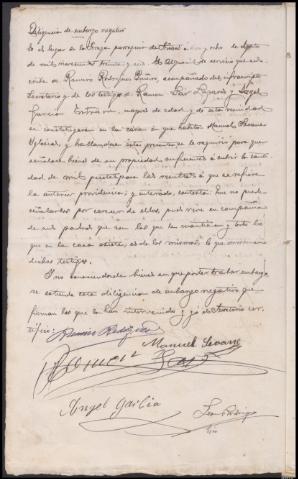 Diligencia de embargo negativo
En el lugar de
de mil novecientos treinta y uno. El alguacil de servicio que sus-
cribe D. Ramiro Rodríguez, acompañado del infrascrito
Secretario y de los testigos D. Ramon y Angel
Garcia, mayores de edad y de esta vecindad
se constituyeron en la casa en que habita Manuel
Iglesias, y hallandose este presente se le requirio para que
señalase bienes de su propiedad suficientes a cubrir la canti-
dad de mil pesetas para las resultas a que se refiere
la anterior providencia; y enterado, contesta: Que no puede
señalarlos por carecer de ellos, pues vive en compañia
de sus padres que son los que le mantienen y todo lo
que en la casa existe, es de los mismos, lo que
dichos testigos.
Y no conociendole bienes en que poder trabar embargo,
se extiende esta diligencia de embargo negativo que
firman los que la han intervenido y yo Secretario cer-
tifico:
Manuel
Ramon
Angel Garcia